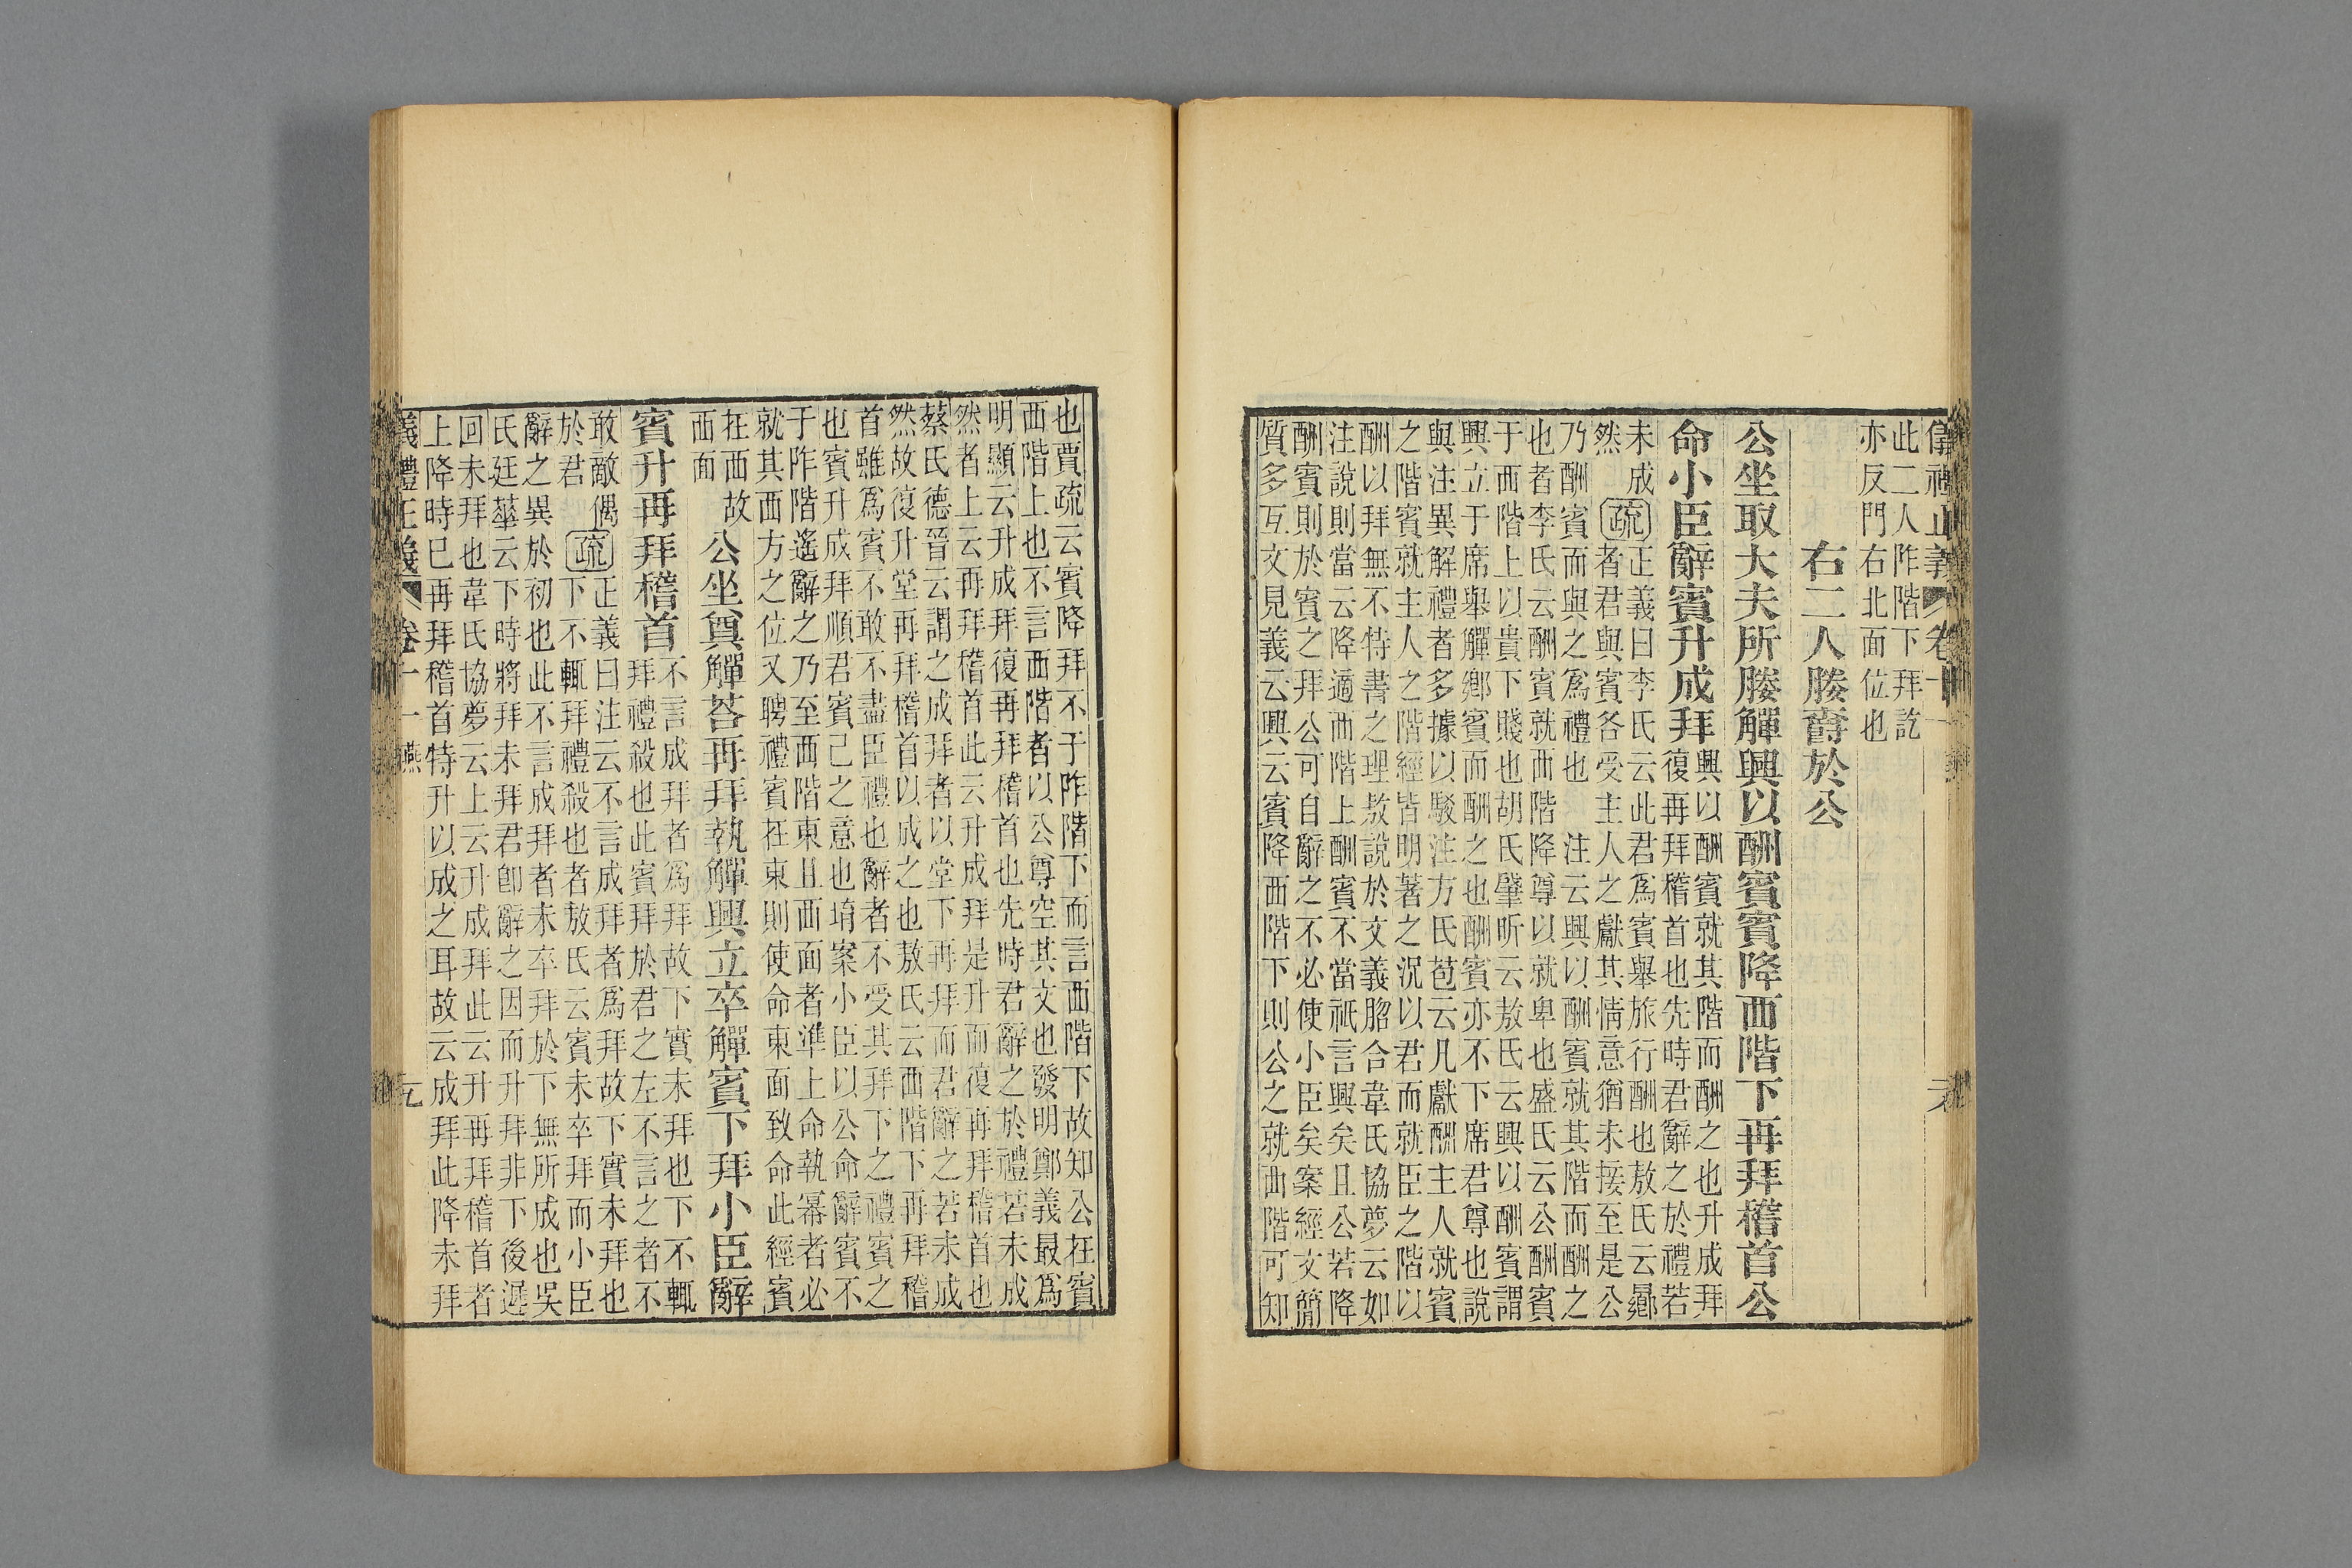 儀禮正義 卷十一
此二人阼階下拜訖
亦反門右北面位也
右二人媵爵於公
公坐取大夫所媵觶興以酬賓賓降西階下再拜稽首公
命小臣辭賓升成拜
興以酬賓就其階而酬之也升成拜
復再拜稽首也先時君辭之於禮若
未成
然
疏
正義曰李氏云此君爲賓舉旅行酬也敖氏云曏
者君與賓各受主人之獻其情意猶未接至是公
乃酬賓而與之爲禮也 注云興以酬賓就其階而酬之
也者李氏云酬賓就西階降尊以就卑也盛氏云公酬賓
于西階上以貴下賤也胡氏肇昕云敖氏云興以酬賓謂
興立于席舉觶鄉賓而酬之也酬賓亦不下席君尊也說
與注異解禮者多據以駁注方氏苞云凡獻酬主人就賓
之階賓就主人之階經皆明著之況以君而就臣之階以
酬以拜無不特書之理敖說於文義脗合韋氏協夢云如
注說則當云降適西階上酬賓不當祇言興矣且公若降
酬賓則於賓之拜公可自辭之不必使小臣矣案經文簡
質多互文見義云興云賓降西階下則公之就西階可知
也賈疏云賓降拜不于阼階下而言西階下故知公在賓
西階上也不言西階者以公尊空其文也發明鄭義最爲
明顯云升成拜復再拜稽首也先時君辭之於禮若未成
然者上云再拜稽首此云升成拜是升而復再拜稽首也
蔡氏德晉云謂之成拜者以堂下再拜而君辭之若未成
然故復升堂再拜稽首以成之也敖氏云西階下再拜稽
首雖爲賓不敢不盡臣禮也辭者不受其拜下之禮賓之
也賓升成拜順君賓己之意也堉案小臣以公命辭賓不
于阼階遙辭之乃至西階東且西面者準上命執冪者必
就其西方之位又聘禮賓在東則使命東面致命此經賓
在西故
西面
公坐奠觶荅再拜執觶興立卒觶賓下拜小臣辭
賓升再拜稽首
不言成拜者爲拜故下實未拜也下不輒
拜禮殺也此賓拜於君之左不言之者不
敢敵偶
於君
疏
正義曰注云不言成拜者爲拜故下實未拜也
下不輒拜禮殺也者敖氏云賓未卒拜而小臣
辭之異於初也此不言成拜者未卒拜於下無所成也吳
氏廷華云下時將拜未拜君卽辭之因而升拜非下後遲
回未拜也韋氏協夢云上云升成拜此云升再拜稽首者
上降時已再拜稽首特升以成之耳故云成拜此降未拜
儀禮正義 卷十一 燕